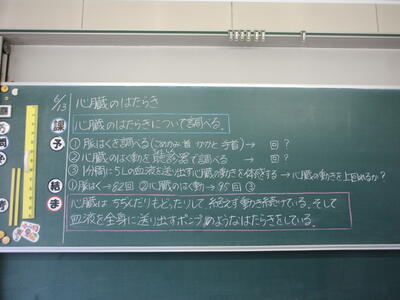 6/13 心臓のはたらき
課 心臓のはたらきについて調べる。
予 ①脈はくを調べる(こめかみ 首 かかと 手首)→ 回?
②心臓のはく動を聴診器で調べる → 回?
③1分間に5Lの血液を送り出す心臓の動きを体感する→心臓の動きを上回れるか?
結 ①脈はく→82回 ②心臓のはく動→95回 ③
ま 心臓は ちぢんだりもどったりして 絶えず動き続けている。そして
血液を全身に送り出すポンプのようなはたらきをしている。